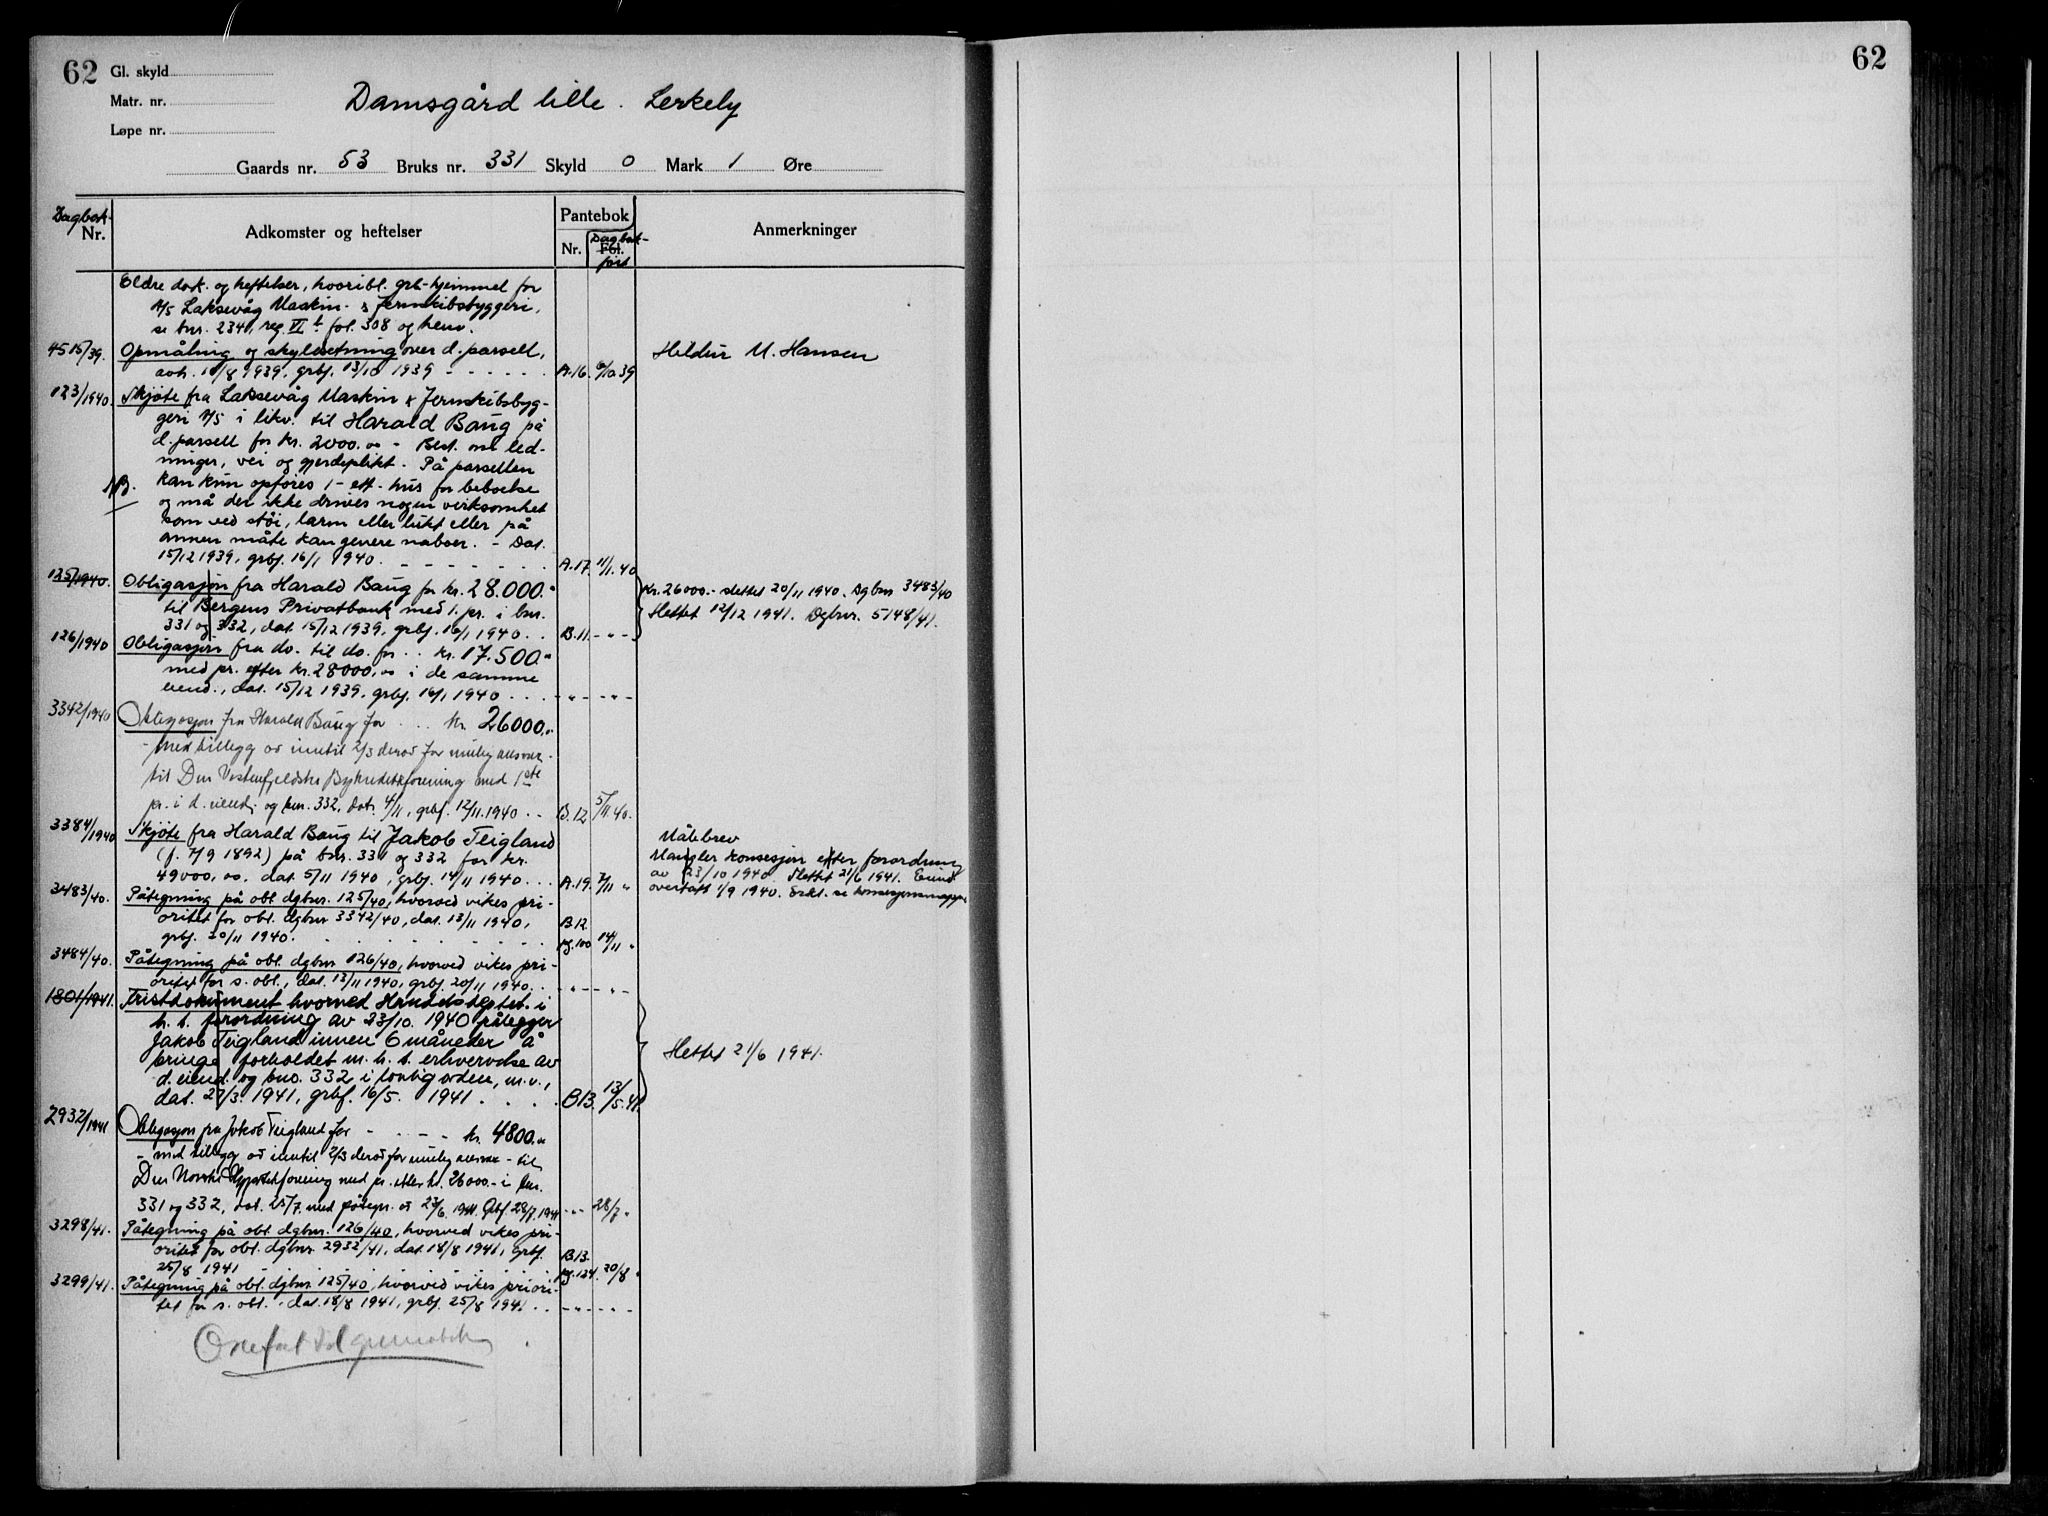 62
62
Gl. skyld
Matr. nr.
Løpe nr.
Damsgård lille. Lerkely
Gaards nr. 53 Bruks nr. 331 Skyld 0 Mark 1 Øre
Dagbok-
Nr.
Adkomster og heftelser
Pantebok
Nr.
Fol.
Dagbok-
ført
Anmerkninger
Eldre dok. og heftelser, hvoribl. grb.-hjemmel for
A/S Laksevåg Maskin- & Jernskibsbyggeri,
se bnr. 234, reg. VI b fol. 308 og henv.
4515/39. Opmåling og skyldsetning over d. parsell,
avh. 11/8 1939, grbf. 13/10 1939 - - - - - A.16. 6/10 39
Hildur M. Hansen
123/1940. Skjøte fra Laksevåg Maskin & Jernskibsbyg-
geri A/S i likv. til Harald Baug på
d. parsell for kr. 2000.oo - Best. om led-
ninger, vei og gjerdeplikt. På parsellen
NB. kan kun opføres 1 - ett - hus for beboelse
og må der ikke drives nogen virksomhet
som ved støi, larm eller lukt eller på
annen måte kan genere naboer. - Dat.
15/12 1939, grbf. 16/1 1940. - - - - - - - A.17. 11/1.40
125/1940. Obligasjon fra Harald Baug for kr. 28.000.-
til Bergens Privatbank med 1. pr. i bnr.
331 og 332, dat. 15/12 1939, grbf. 16/1 1940 . . B.11. - " -
Kr. 26000.- slettet 20/11 1940. Dgbnr 3483/40
Slettet 12/12 1941. Dgbnr. 5148/41.
126/1940 Obligasjon fra do. til do. for . . kr. 17.500.-
med pr. efter kr. 28000.oo i de samme
eiend., dat. 15/12 1939, grbf. 16/1 1940 . . . - " - - " -
3342/1940 Obligasjon fra Harald Baug for . . . kr. 26000.-
- med tillegg av inntil 2/3 derav for mulig ansvar -
til Den Vestenfjeldske Bykredittforening med 1ste
pr. i d. eiend. og bnr. 332, dat. 4/11, grbf. 12/11 1940 . . B.12 5/11 40.
3384/1940 Skjøte fra Harald Baug til Jakob Teigland
(f. 7/9 1892) på bnr. 331 og 332 for kr.
49000,oo. dat. 5/11 1940, grbf. 14/11 1940 . . . A.19. 7/11 "
Målebrev
Mangler konsesjon efter forordning
av 23/10 1940. Slettet 21/6 1941. Eiend.
overtatt 1/9 1940. se konsesjonsmappe
3483/40. Påtegning på obl. dgbnr. 125/40, hvorved vikes pri-
oritet for obl. dgbnr 3342/40, dat. 13/11 1940,
grbf. 20/11 1940. - - - - - - B12. pg. 100 14/11 "
3484/40. Påtegning på obl. dgbnr 126/40, hvorved vikes pri-
oritet for s. obl., dat. 13/11 1940, grbf. 20/11 1940. . - " - - " -
1801/1941. Fristdokument hvorved Herredskaptet. i
h. t. forordning av 23/10. 1940 pålegger
Jakob Teigland innen 6 måneder å
bringe forholdet m. h. t. erhvervelse av
d. eiend. og bnr. 332 i lovlig orden, m. v.,
dat. 27/3. 1941, grbf. 16/5. 1941 . . . . B13. 13/5.41.
Slettet 21/6 1941.
2932/1941 Obligasjon fra Jakob Teigland for - . . - - kr. 4800.-
- med tillegg av inntil 2/3 derav for mulig ansvar - til
Den Norske Hypotekforening med pr. etter kr. 26000.- i bnr.
331 og 332, dat. 25/7. med påtegn. av 27/6. 1941. Grbf. 28/7. 1941 - " - 28/7 "
3298/41. Påtegning på obl. dgbnr. 126/40, hvorved vikes pri-
oritet for obl. dgbnr. 2932/41, dat. 18/8 1941, grbf.
25/8 1941 . . . . . . B13. pg. 124. 20/8 "
3299/41. Påtegning på obl. dgbnr. 125/40, hvorved vikes priori-
tet for s. obl., dat. 18/8 1941, grbf. 25/8 1941 . . - " - - " -
Overført til